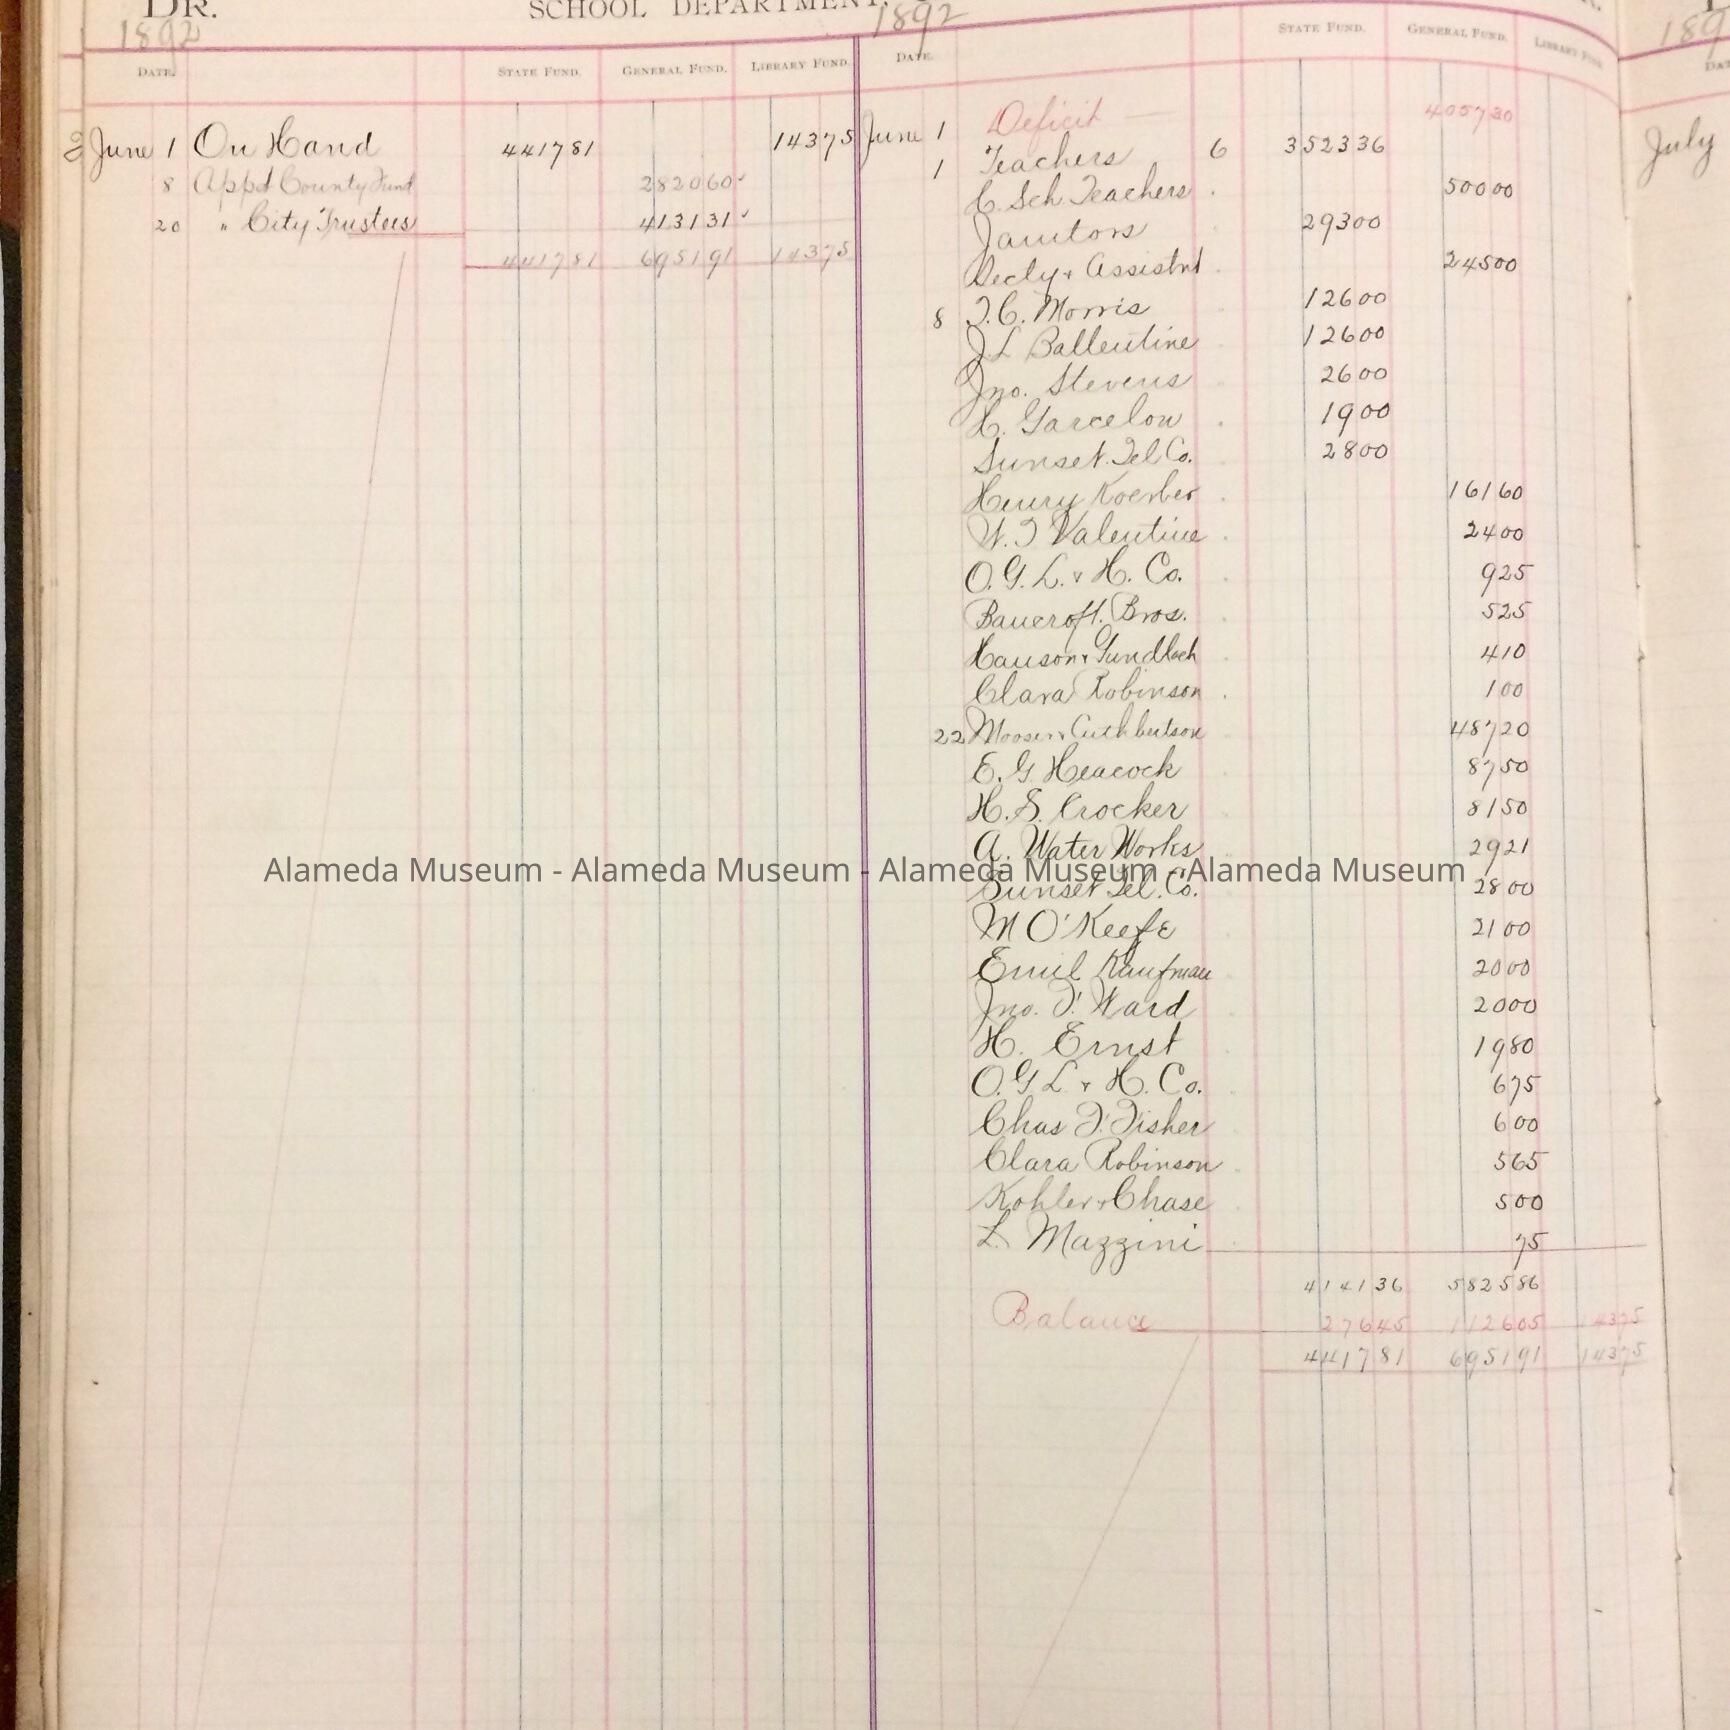 DR. SCHOOL DEPARTMENT.
1892 1892 189
DATE. STATE FUND. GENERAL FUND. LIBRARY FUND.
June 1 On Hand 441781 14375
8 Appd County Fund 282060
20 " City Trustees 413131
441781 695191 14375
DATE. STATE FUND. GENERAL FUND. LIBRARY FUND.
June 1 Deficit 405730
1 Teachers 6 352336
E. Sch Teachers 50000
Janitors 29300
Secty & Assistnt 24500
8 T. C. Morris 12600
J L Ballentine 12600
Jno. Stevens 2600
H. Garcelow 1900
Sunset Tel Co. 2800
Henry Koerber 16160
W. T Valentine 2400
O. G. L. & H. Co. 925
Bancroft Bros. 525
Hanson & Gundlach 410
Clara Robinson 100
22 Mooser & Cuthbertson 48720
E. G Heacock 8750
H. S. Crocker 8150
A. Water Works 2921
Sunset Tel. Co. 2800
M O'Keefe 2100
Emil Kaufman 2000
Jno. F. Ward 2000
H. Ernst 1980
O. G. L. & H. Co. 675
Chas F. Fisher 600
Clara Robinson 565
Kohler & Chase 500
L. Mazzini 75
414136 582586
Balance 27645 112605 14375
441781 695191 14375
July
Alameda Museum - Alameda Museum - Alameda Museum - Alameda Museum